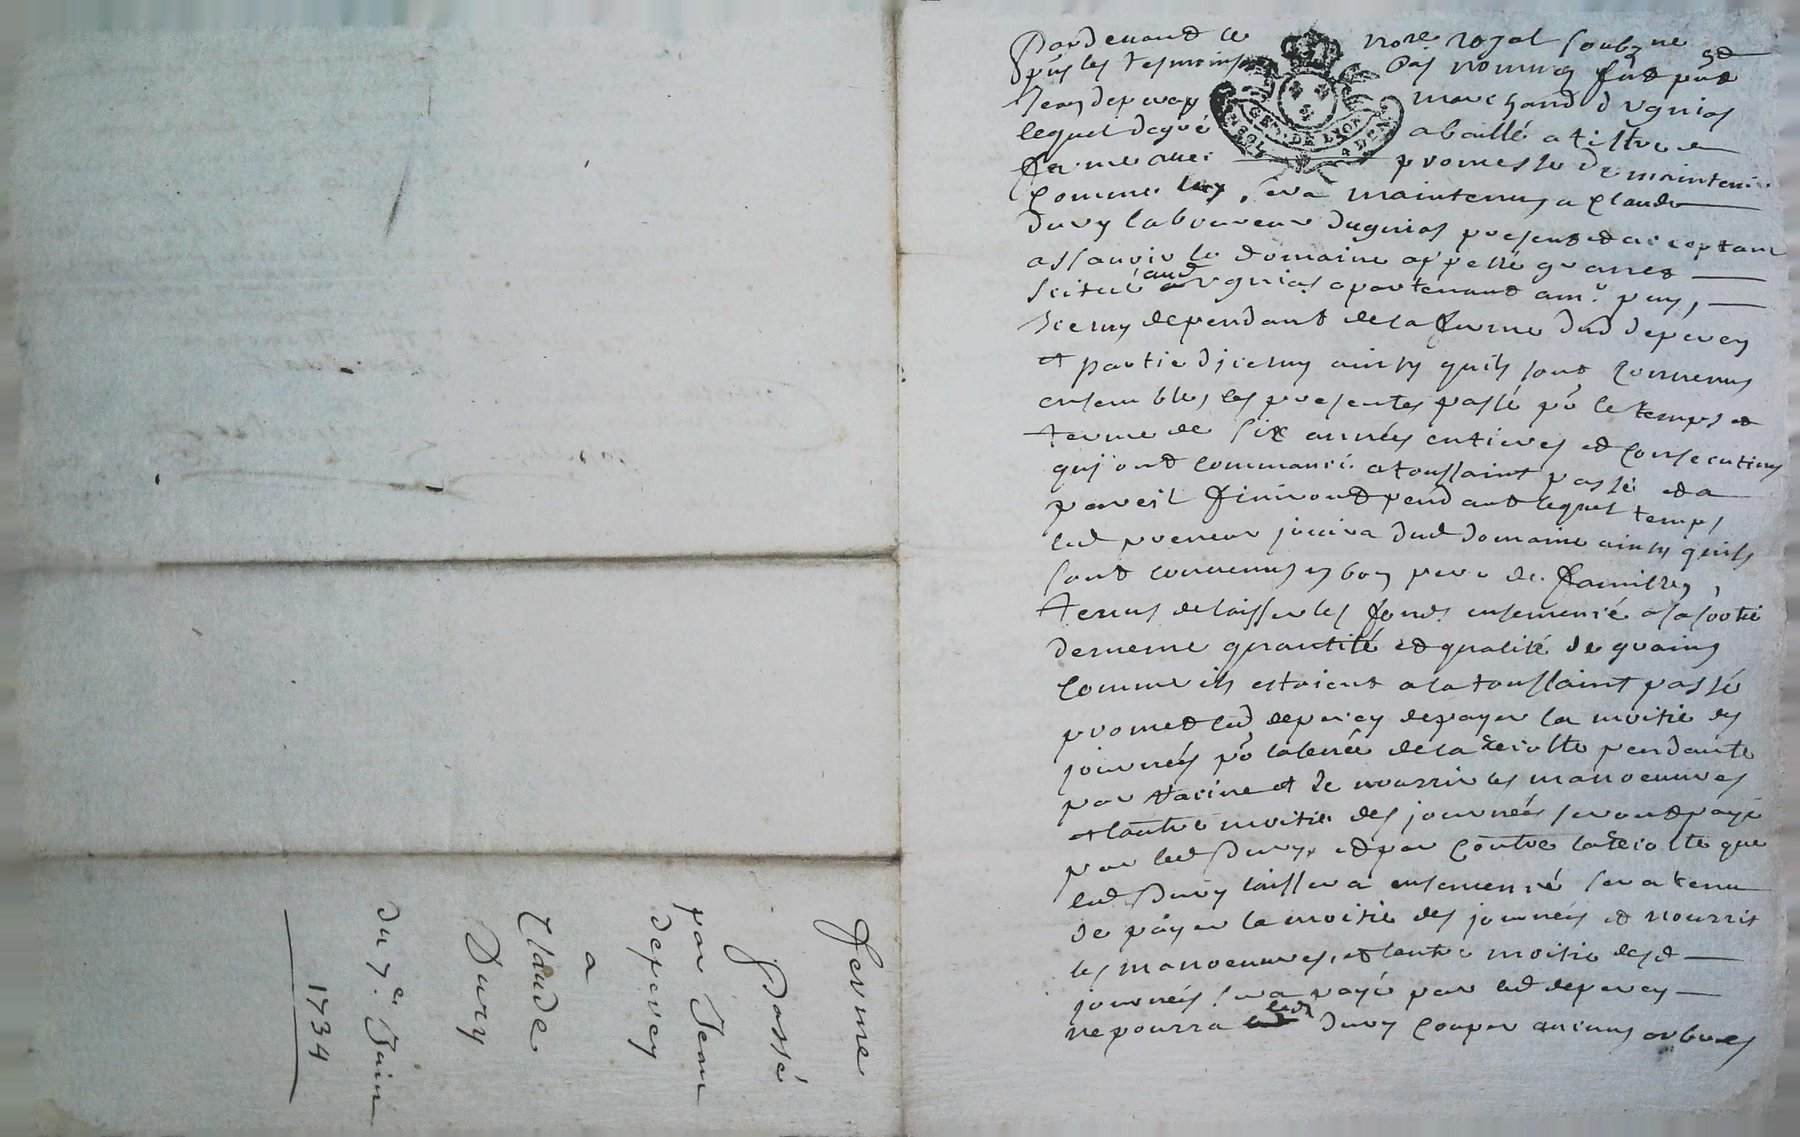 Pardevant le nore royal soubzne et
puis les tesmoins bas nommes fut pnt
Jean deperey marchand d ugnias
lequel de gré a baillé a tiltre
ferme avec promesse de maintenir
comme luy sera maintenus a Claude
Dury laboureur dugnias present et acceptant
assavoir le domaine appellé quarret
scitué aud ugnias apartenant a mr puis,
Icemy dependant de la ferme dud deperey
et partie d icemy ainsy quils sont Convenus
ensembles, les presentes passé po le temps et
terme de six années entieres et consecutives
qui ont commancé a toussaint passé et a
pareil finiront pendant lequel temps
led preneur jouira dud domaine ainsy quils
sont convenus en bon pere de familles,
tenus de laisser les fonds ensemencé a sa sortie
de meme quantité et qualité de grains
comme ils estoient a la toussaint passé
promet led deperey de payer la moitie des
journées po la levée de la recolte pendante
par racine et de nourrir les manoeuvres
et lautre moitie des journées seront payé
par led Dury, et par contre la recolte que
led Dury laissera ensemencé sera tenu
de payer la moitie des journées et nourrir
les manoeuvres, et lautre moitie desd
journées sera payé par led deperey
ne pourra led Dury couper aucuns arbres
GEN. DE LYON
4 DEN.
ferme
Passé
par Jean
deperey
a
Claude
Dury
du 7.e Juin
1734